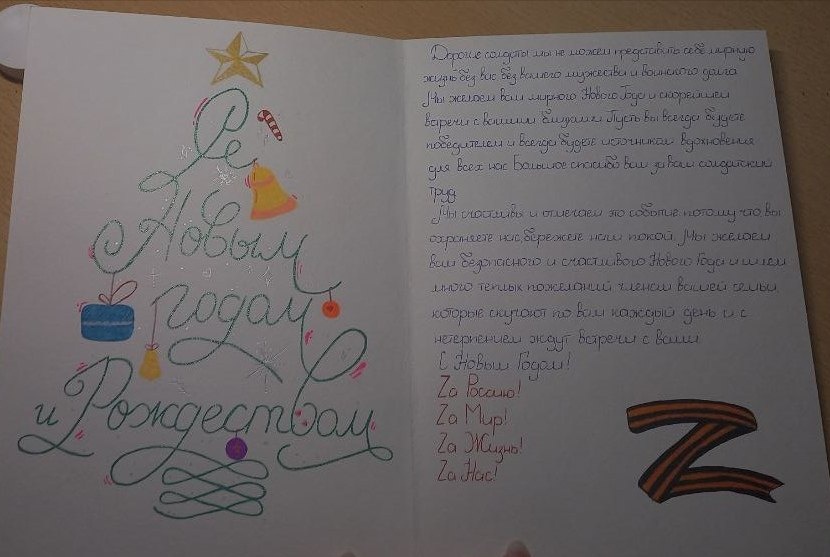 С
Новым
годом
и Рождеством
Дорогие солдаты мы не можем представить себе мирную
жизнь без вас без вашего мужества и воинского долга
Мы желаем вам мирного Нового Года и скорейшей
встречи с вашими близкими Пусть вы всегда будете
победителем и всегда будете источником вдохновения
для всех нас Большое спасибо вам за вам солдатский
труд
Мы счастливы и отмечаем это событие потому что вы
охраняете нас бережете наш покой. Мы желаем
вам безопасного и счастливого Нового Года и шлем
много теплых пожеланий членам вашей семьи
которые скучают по вам каждый день и с
нетерпением ждут встречи с вами
С Новым Годом!
Zа Россию!
Zа Мир!
Zа Жизнь!
Zа Нас!
Z